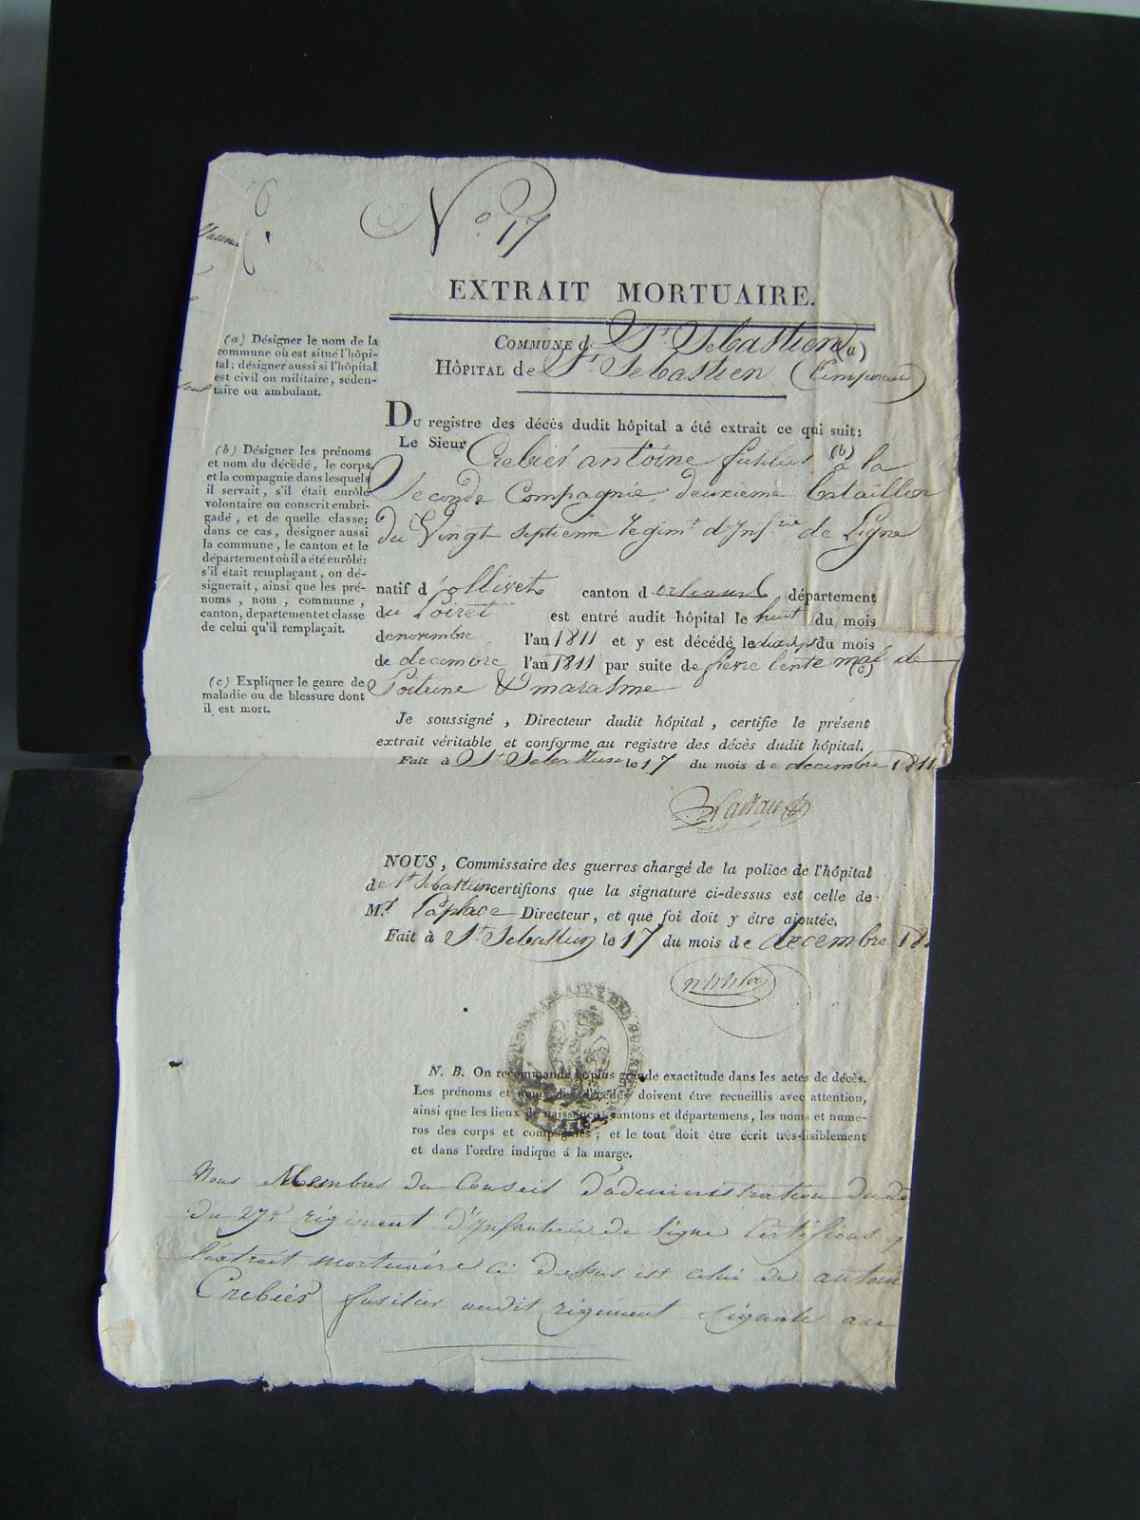 N° 17
EXTRAIT MORTUAIRE.
COMMUNE d St Sebastien (a)
HÔPITAL de St Sebastien
(a) Désigner le nom de la
commune où est situé l'hôpi-
tal; désigner aussi si l'hôpital
est civil ou militaire, séden-
taire ou ambulant.
DU registre des décès dudit hôpital a été extrait ce qui suit:
Le Sieur Crebier antoine fusilier (b) à la
Seconde Compagnie deuxieme Bataillon
du Vingt septieme regimt d'Infrie de Ligne
(b) Désigner les prénoms
et nom du décédé, le corps
et la compagnie dans lesquels
il servait, s'il était enrôlé
volontaire ou conscrit embri-
gadé, et de quelle classe;
dans ce cas, désigner aussi
la commune, le canton et le
département où il a été enrôlé:
s'il était remplaçant, on dé-
signerait, ainsi que les pré-
noms, nom, commune,
canton, departement et classe
de celui qu'il remplaçait.
natif d'ollivet canton d orleans département
du Loiret est entré audit hôpital le huit du mois
de novembre l'an 1811 et y est décédé le dix sept du mois
de decembre l'an 1811 par suite de fievre lente (c) de
Poitrine & marasme
(c) Expliquer le genre de
maladie ou de blessure dont
il est mort.
Je soussigné, Directeur dudit hôpital, certifie le présent
extrait véritable et conforme au registre des décès dudit hôpital.
Fait à St Sebastien le 17 du mois de decembre 1811
NOUS, Commissaire des guerres chargé de la police de l'hôpital
de St Sebastien certifions que la signature ci-dessus est celle de
Mr Laplace Directeur, et que foi doit y être ajoutée.
Fait à St Sebastien le 17 du mois de decembre 181
N. B. On recommande la plus grande exactitude dans les actes de décès.
Les prénoms et noms des décédés doivent être recueillis avec attention,
ainsi que les lieux de naissance, cantons et départemens, les noms et numé-
ros des corps et compagnies; et le tout doit être écrit très-lisiblement
et dans l'ordre indiqué á la marge.
Nous Membres du Conseil d'administration du
du 27e régiment d'Infanterie de ligne Certifions q
l'extrait mortuaire ci dessus est celui de antoine
Crebier fusilier audit régiment